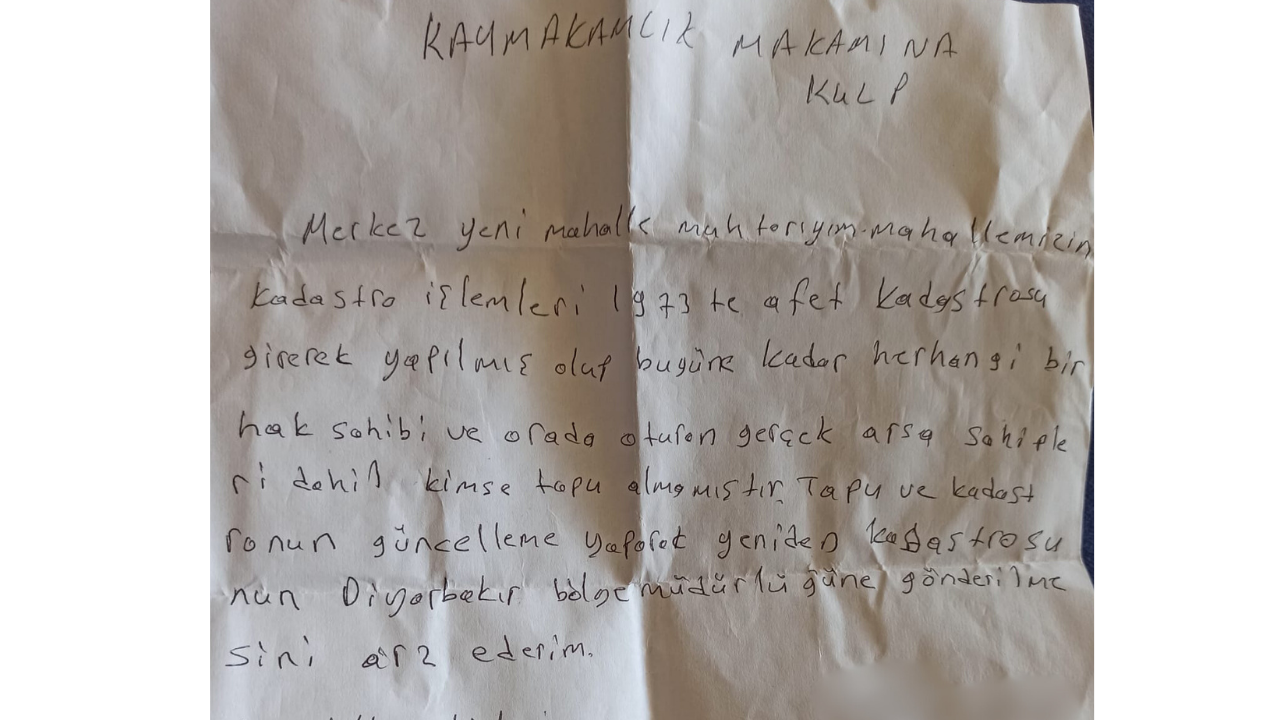 KAYMAKAMLIK MAKAMINA
KULP
Merkez yeni mahalle muhtarıyım. mahallemizin
kadastro işlemleri 1973 te afet kadastrosu
girerek yapılmış olup bugüne kadar herhangi bir
hak sahibi ve orada oturan gerçek arsa sahiple
ri dahil kimse tapu almamıştır. Tapu ve kadast
ronun güncelleme yaparak yeniden kadastrosu
nun Diyarbakır bölge müdürlüğüne gönderilme
sini arz ederim.